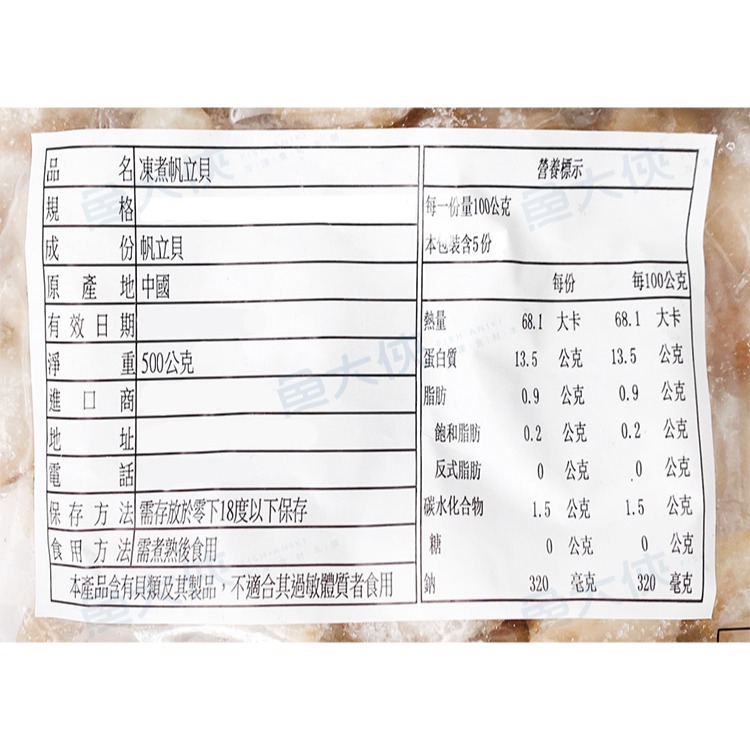 品名 凍煮帆立貝
規格
成份 帆立貝
原產地 中國
有效日期
淨重 500公克
進口商
地址
電話
保存方法 需存放於零下18度以下保存
食用方法 需煮熟後食用
本產品含有貝類及其製品，不適合其過敏體質者食用
營養標示
每一份量100公克
本包裝含5份
每份 每100公克
熱量 68.1 大卡 68.1 大卡
蛋白質 13.5 公克 13.5 公克
脂肪 0.9 公克 0.9 公克
飽和脂肪 0.2 公克 0.2 公克
反式脂肪 0 公克 0 公克
碳水化合物 1.5 公克 1.5 公克
糖 0 公克 0 公克
鈉 320 毫克 320 毫克
魚大俠
魚大俠
魚大俠
魚大俠